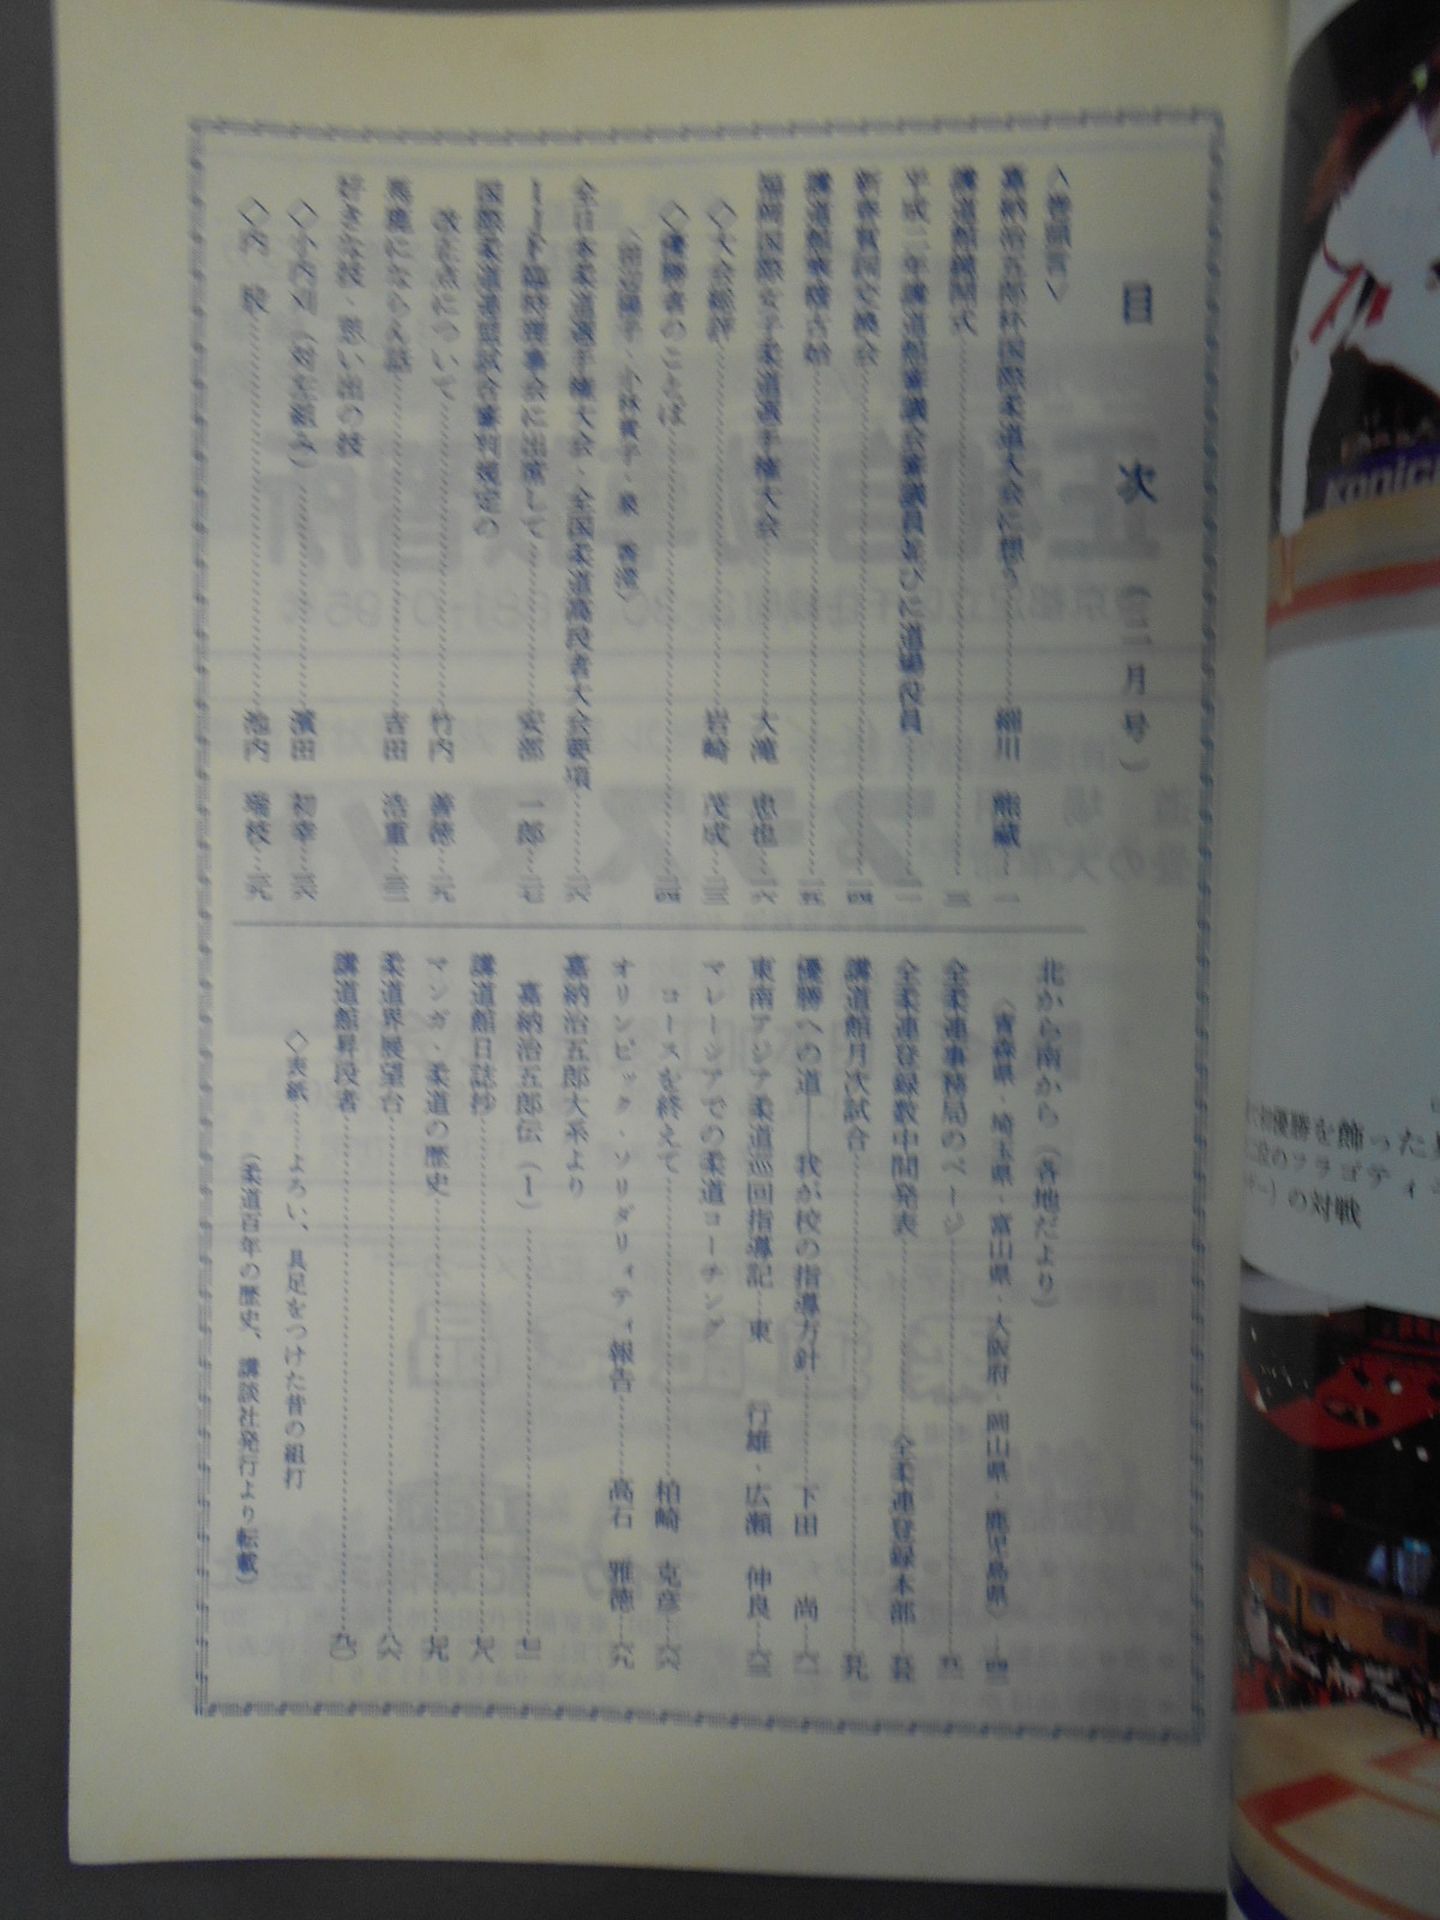 目次（二月号）
〈巻頭言〉
嘉納治五郎杯国際柔道大会に想う……細川 熊蔵…一
講道館鏡開式……三
平成二年講道館審議会審議員並びに道場役員……一一
新春賀詞交換会……一四
講道館寒稽古始……一五
福岡国際女子柔道選手権大会……大滝 忠也…一六
◇大会総評……岩崎 茂成…二三
◇優勝者のことば……二四
全日本柔道選手権大会・全国柔道高段者大会要項……二六
IJF臨時理事会に出席して……安部 一郎…二七
国際柔道連盟試合審判規定の
改正点について……竹内 善徳…二九
馬鹿にならん話……吉田 浩重…三三
好きな技・思い出の技
◇小内刈（対左組み）……濱田 初幸…三六
◇内股……池内 瑞枝…三九
北から南から（各地だより）
〈青森県・埼玉県・富山県・大阪府・岡山県・鹿児島県〉…四三
全柔連事務局のページ
全柔連登録数中間発表……全柔連登録本部
講道館月次試合……五九
優勝への道――我が校の指導方針……下田 尚…六一
東南アジア柔道巡回指導記…東 行雄・広瀬 仲良…六三
マレーシアでの柔道コーチング
コースを終えて……柏崎 克彦…六六
オリンピック・ソリダリィティ報告……高石 雅徳…六九
嘉納治五郎大系より
嘉納治五郎伝（1）……七二
講道館日誌抄
マンガ・柔道の歴史
柔道界展望台……八六
講道館昇段者……九〇
◇表紙……よろい、具足をつけた昔の組打
（柔道百年の歴史、講談社発行より転載）
Konica
初優勝を飾った
のフラゴティ
の対戦